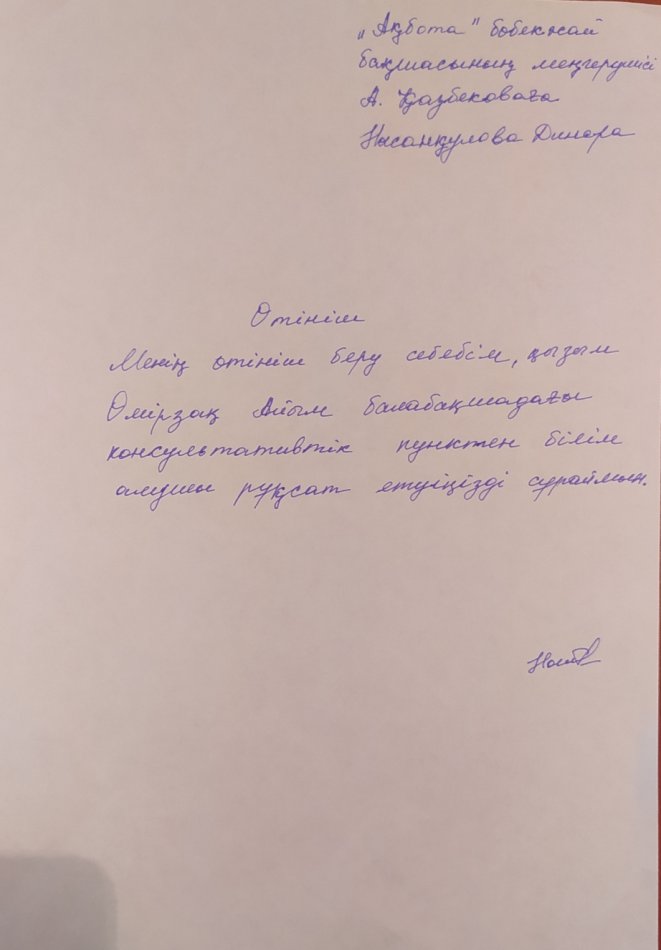 „Ақбота" бөбекжай
бақшасының меңгерушісі
А. Қазбековаға
Нысанқулова Динара
Өтініш
Менің өтініш беру себебім, қызым
Өмірзақ Айым балабақшадағы
консультативтік пунктен білім
алушы рұқсат етуіңізді сұраймын.